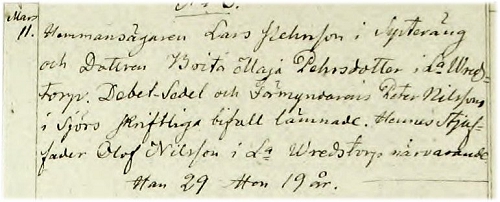 Mars
11. Hemmansägaren Lars Pehrsson i Systeräng
och Dottren Boita Maja Pehrsdotter i La Wreds=
torp. Debet-Sedel och Förmyndarens Peter Nilssons
i Sjörs skriftliga bifall lämnade. Hennes Stjuf-
fader Olof Nilsson i La Wredstorp närvarande
Han 29 Hon 19 år.